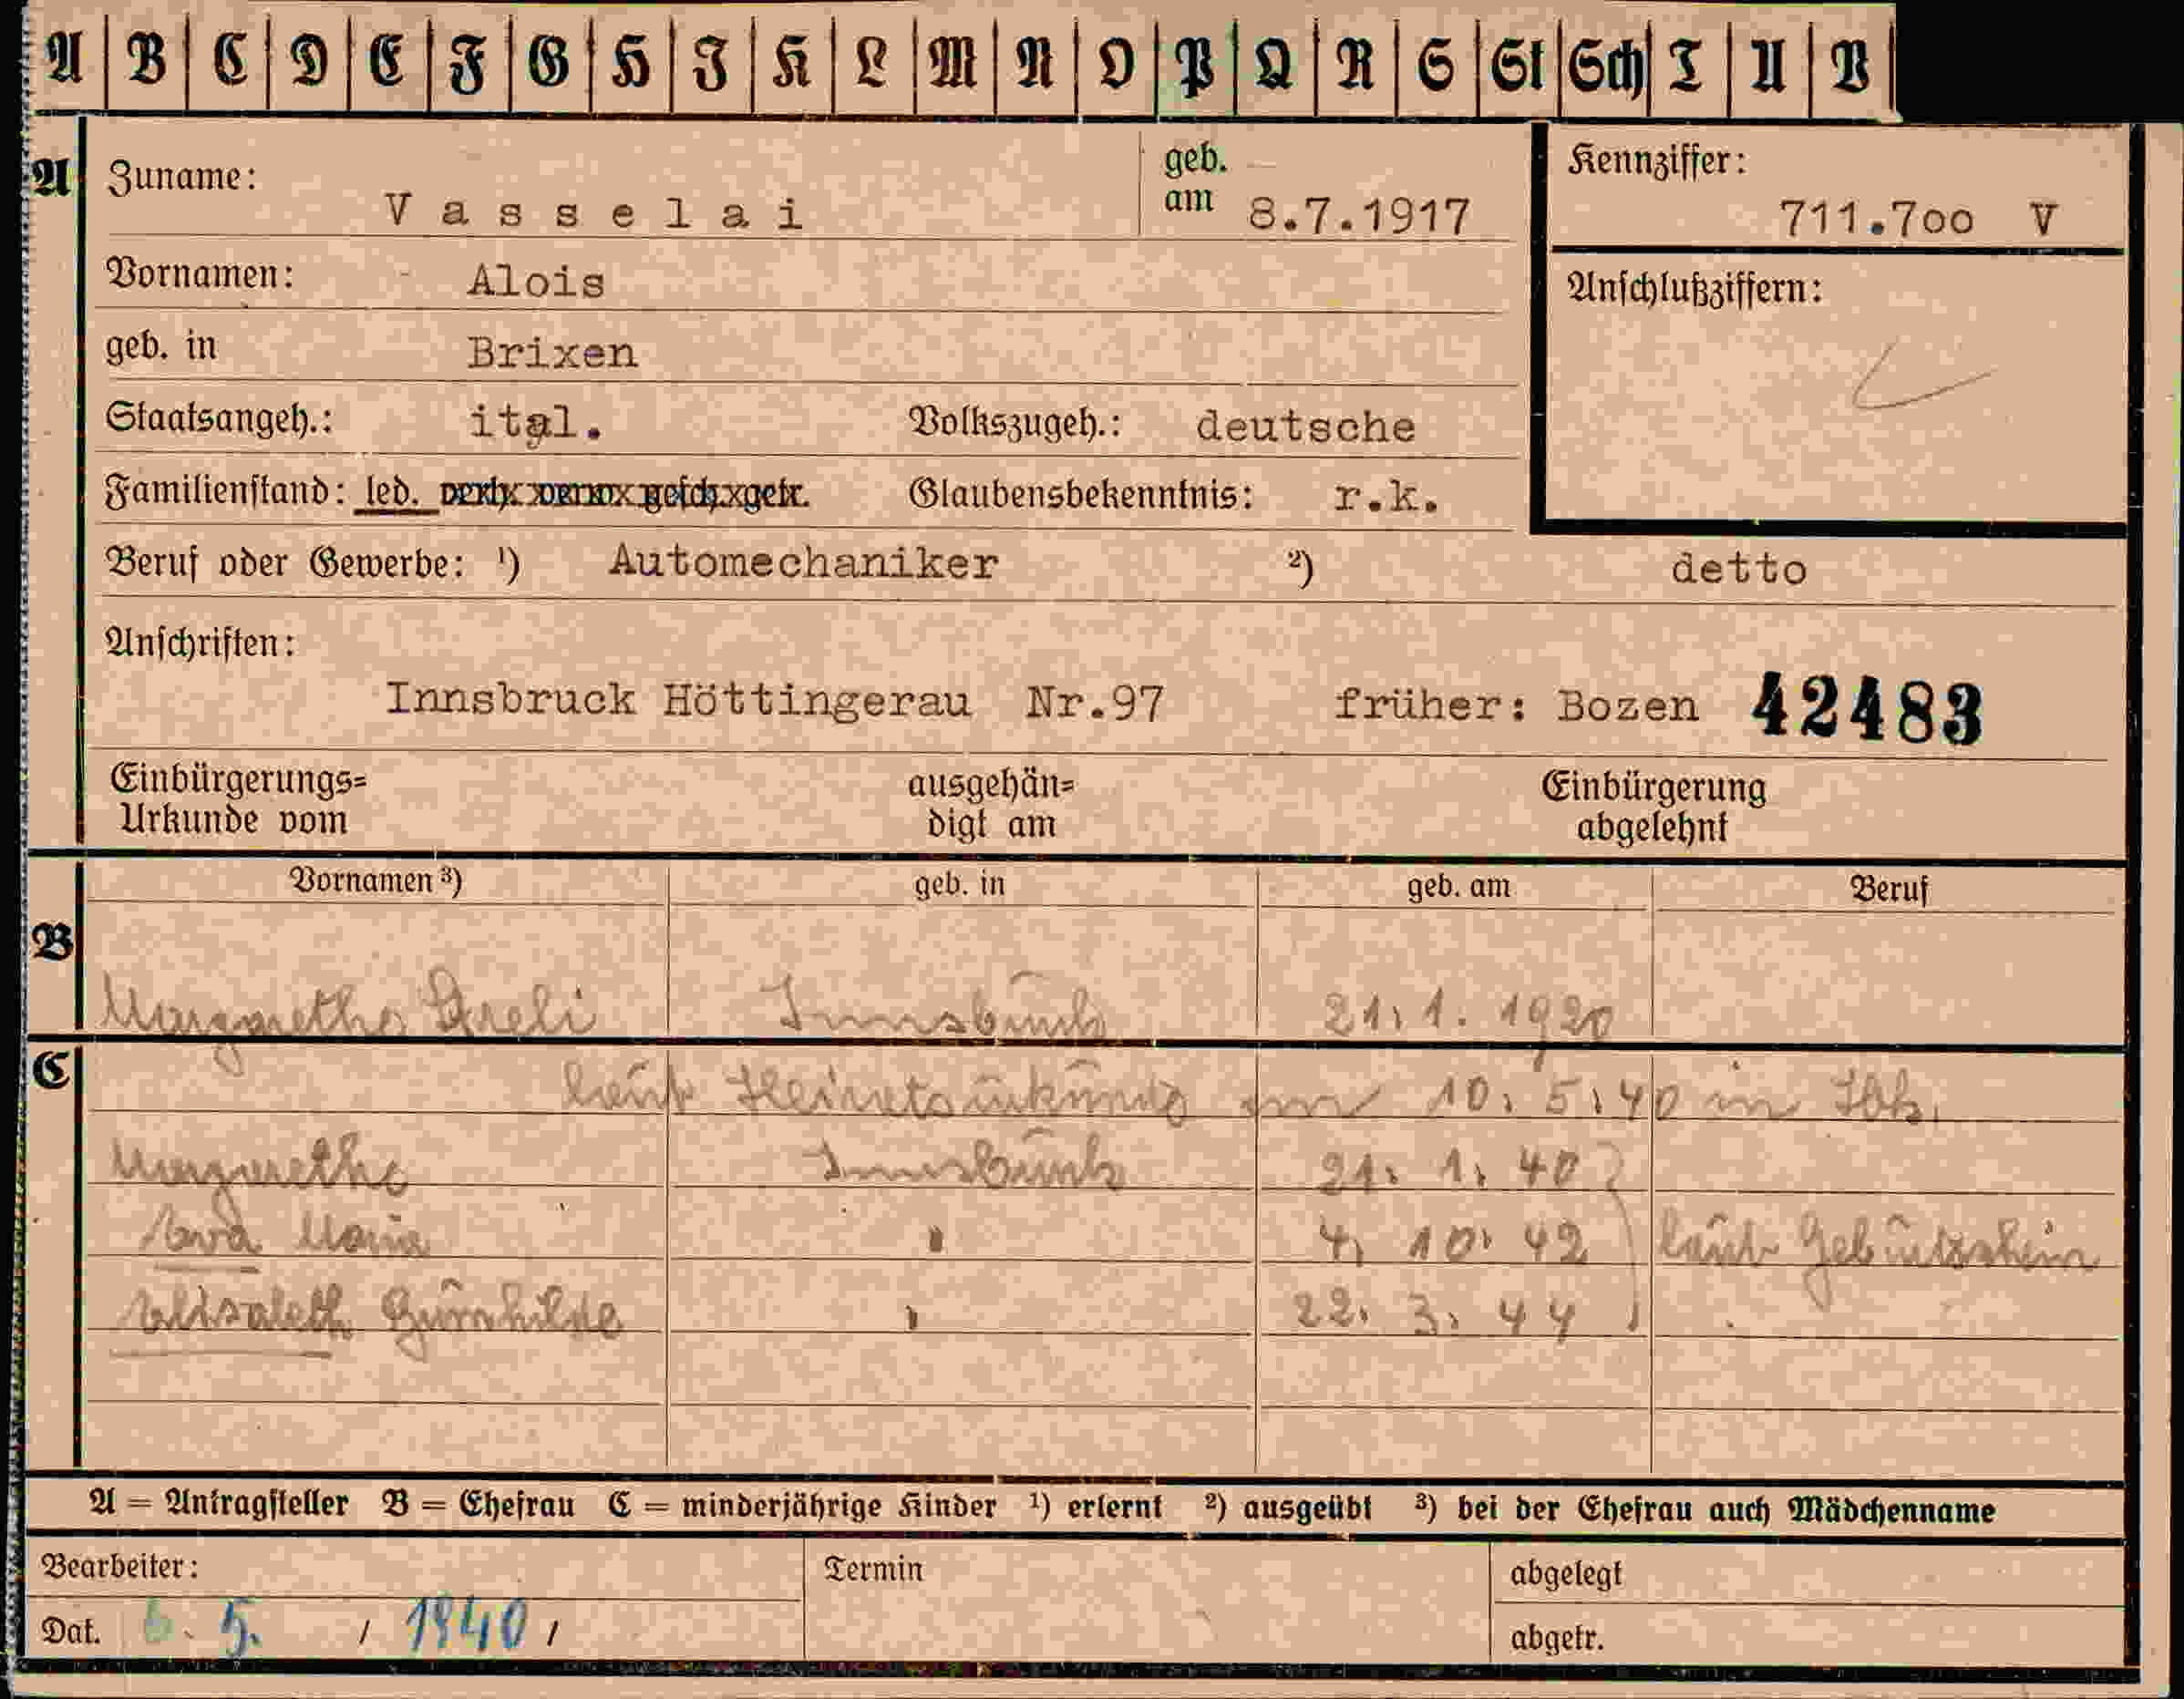 A B C D E F G H I K L M N O P Q R S St Sch T U V
A Zuname: V a s s e l a i geb. am 8.7.1917 Kennziffer: 711.7oo V
Vornamen: Alois Anschlußziffern:
geb. in Brixen
Staatsangeh.: ital. Volkszugeh.: deutsche
Familienstand: led. verh. verw. gesch. getr. Glaubensbekenntnis: r.k.
Beruf oder Gewerbe: ¹) Automechaniker ²) detto
Anschriften:
Innsbruck Höttingerau Nr.97 früher: Bozen 42483
Einbürgerungs= Urkunde vom ausgehän= digt am Einbürgerung abgelehnt
Vornamen ³) geb. in geb. am Beruf
B
Margarethe Innsbruck 21. 1. 1920
C
laut Heiratsurkunde vom 10. 5. 40 in Ibk.
Margarethe Innsbruck 21. 1. 40
Eva Maria " 4. 10. 42 laut Geburtsschein
Elisabeth Gunhilde " 22. 3. 44
A = Antragsteller B = Ehefrau C = minderjährige Kinder ¹) erlernt ²) ausgeübt ³) bei der Ehefrau auch Mädchenname
Bearbeiter: Termin abgelegt
Dat. 6. 5. / 1940 / abgetr.